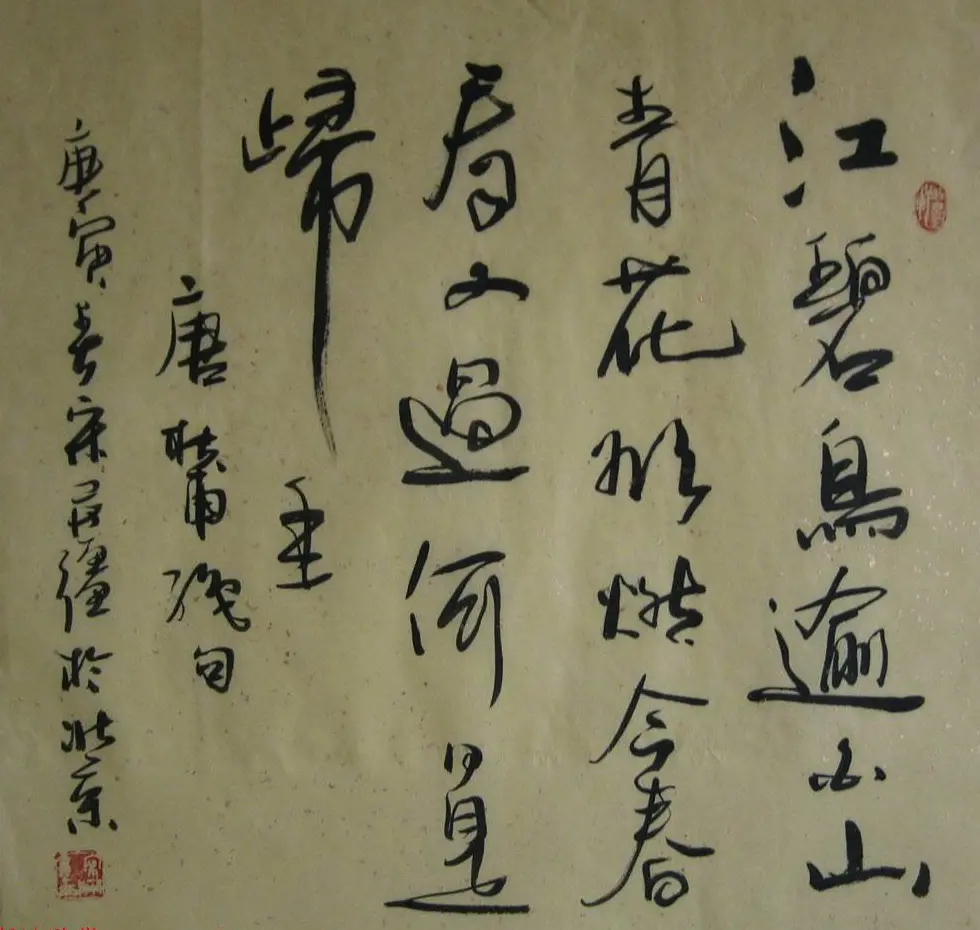 江碧鳥逾白山
青花欲燃今春
看又過何日是
歸年
唐杜甫絕句
庚寅春宋於北京